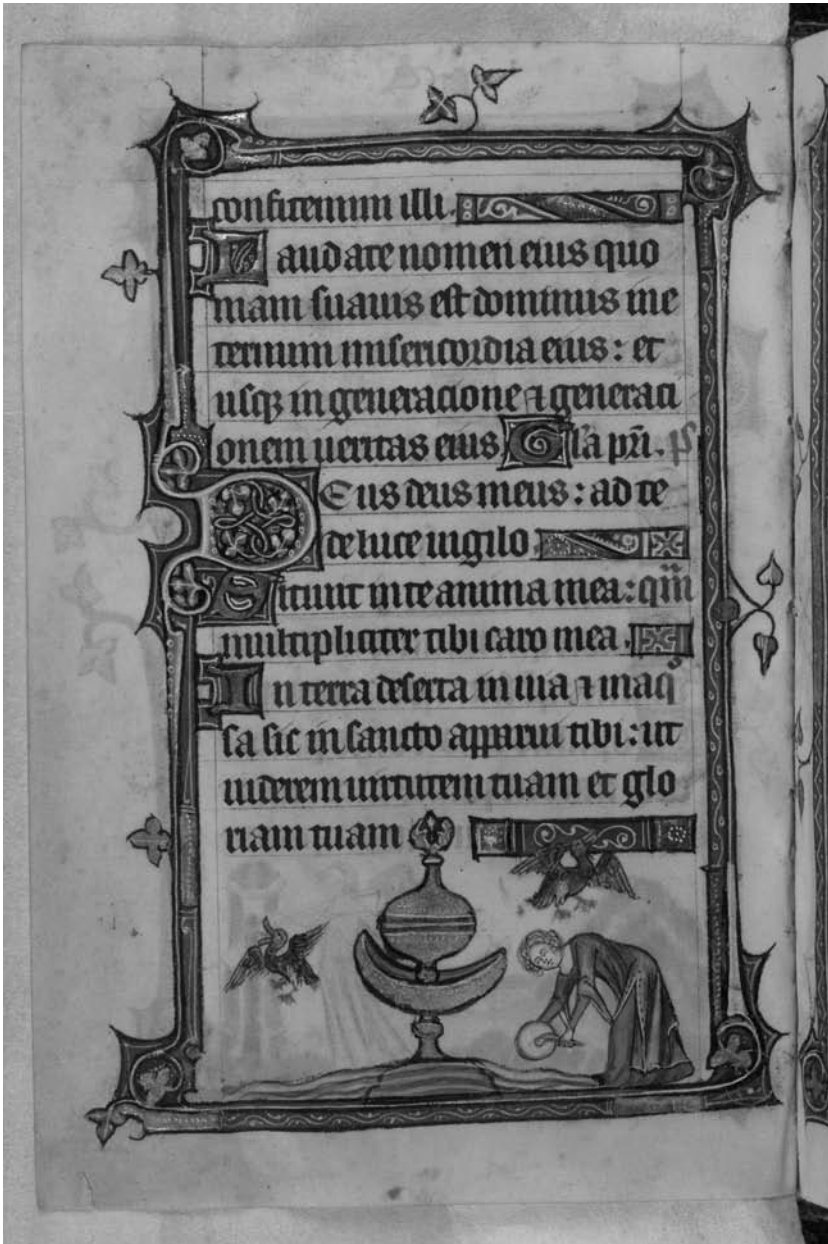 confitemini illi.
Laudate nomen eius quo
niam suauis est dominus ine
ternum misericordia eius: et
usqꝫ in generacione ⁊ generati
onem ueritas eius Gl̄a pr̄i. ps
Deus deus meus: ad te
de luce uigilo.
Sitiuit in te anima mea: qm̄
multipliciter tibi caro mea.
In terra deserta in uia ⁊ inaqͦ
sa sic in sancto apparui tibi: ut
uiderem uirtutem tuam et glo
riam tuam